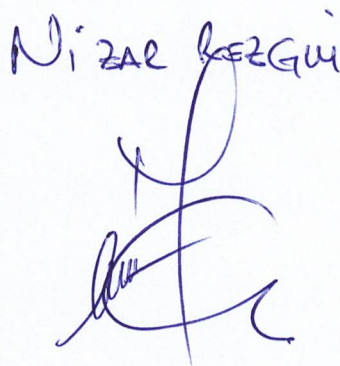 Nizar REZGUI